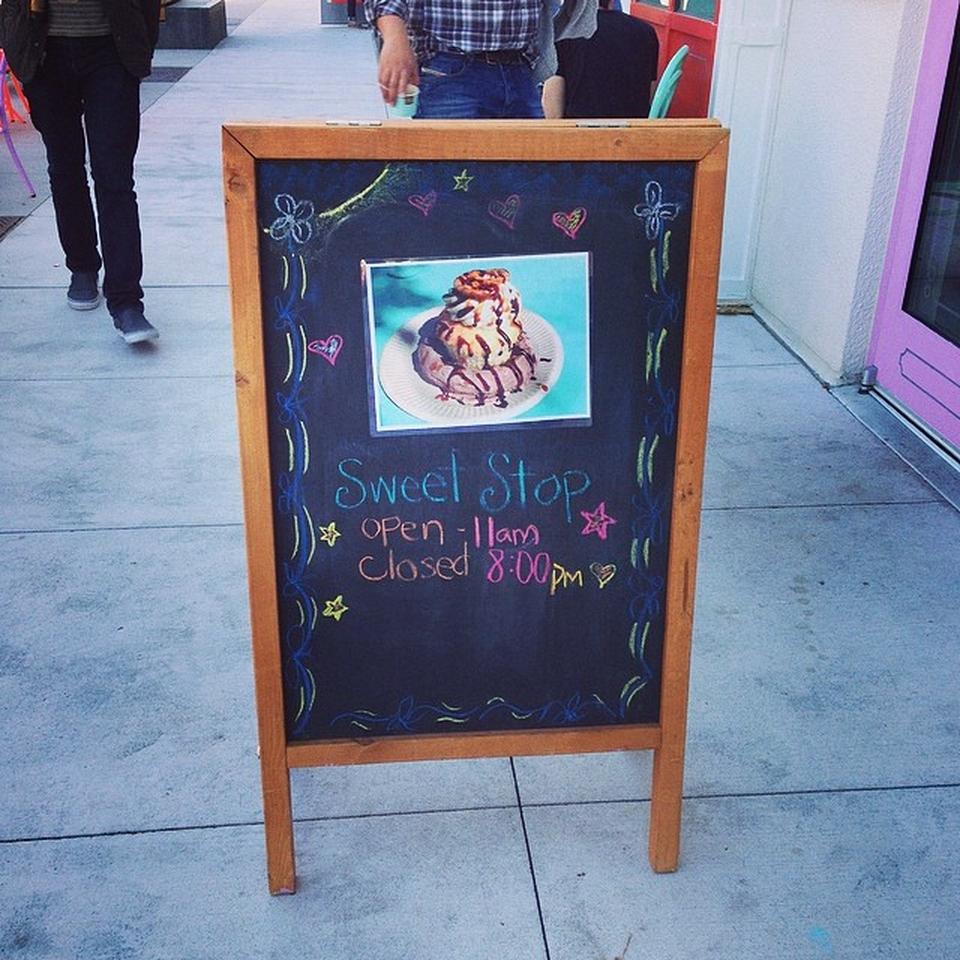 Sweet Stop
open - 11am
closed 8:00pm